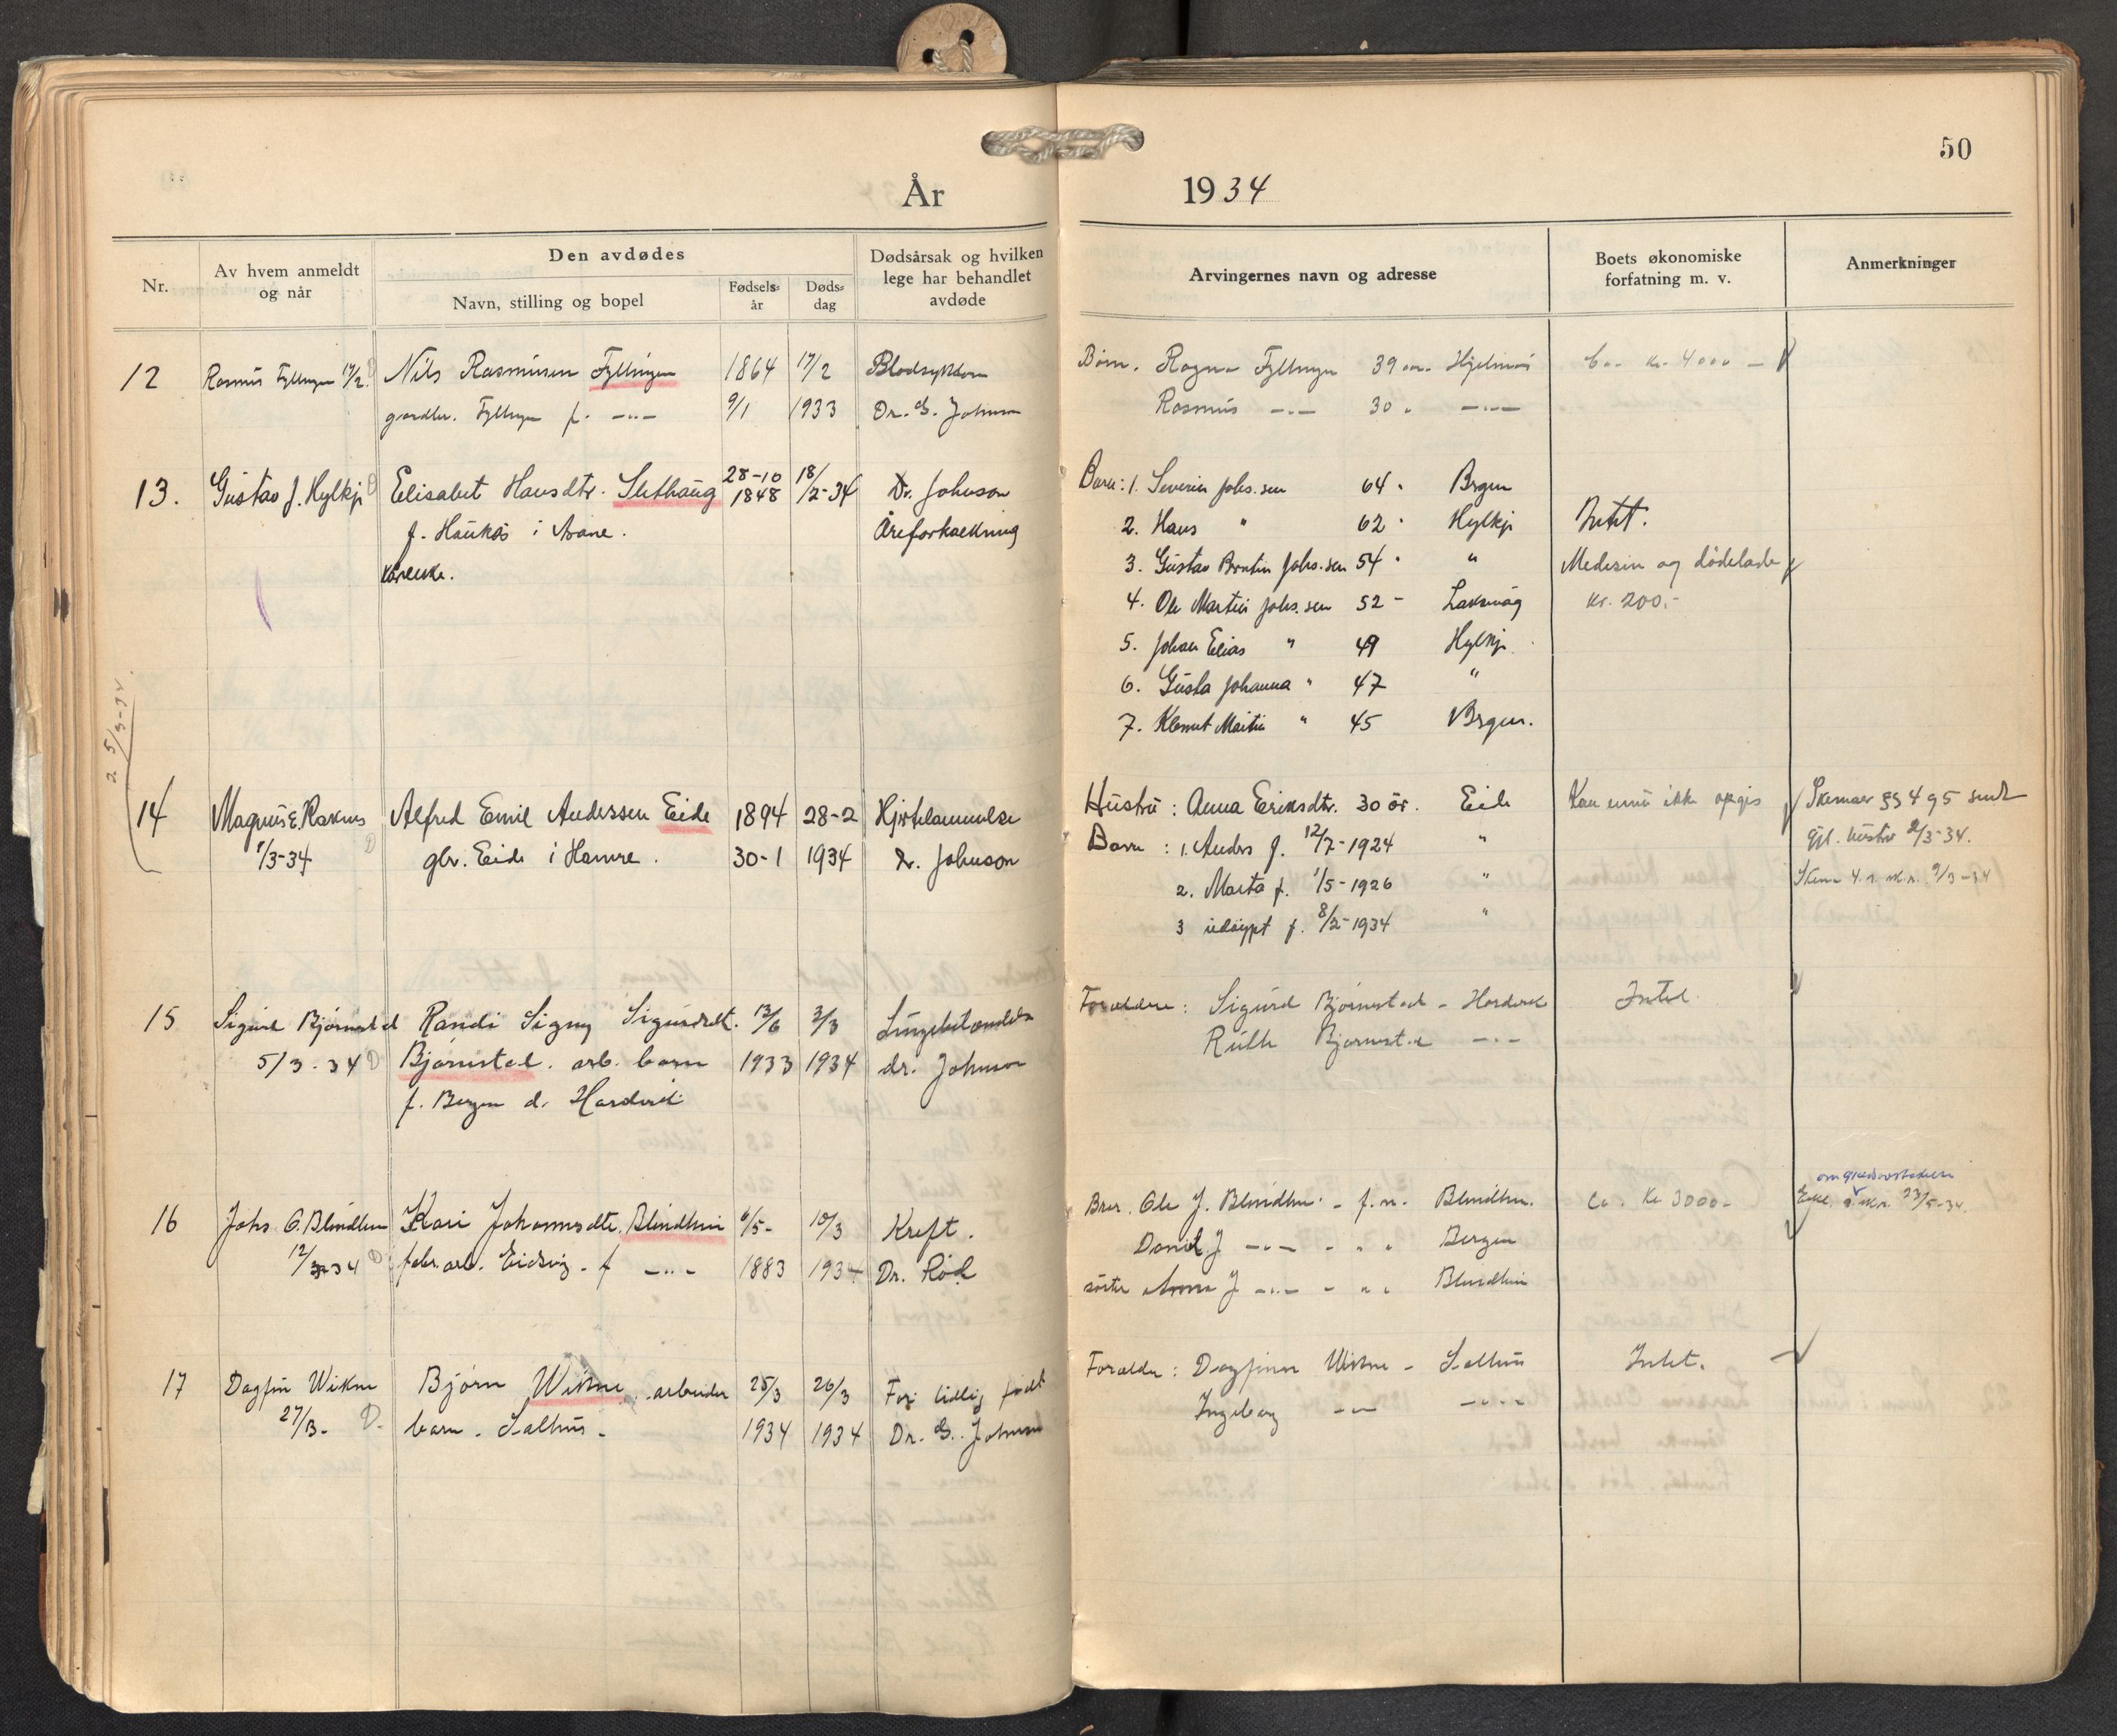 50
År 1934
Nr.
Av hvem anmeldt
og når
Den avdødes
Navn, stilling og bopel
Fødsels-
år
Døds-
dag
Dødsårsak og hvilken
lege har behandlet
avdøde
Arvingernes navn og adresse
Boets økonomiske
forfatning m. v.
Anmerkninger
12 Rasmus Fyllingen 17/2 Nils Rasmussen Fyllingen 1864 17/2 Blodsykdom Børn. Ragna Fyllingen 39 Hjelmås Ca. kr. 4000 -
gardbr. Fyllingen f. -"- 9/1 1933 Dr. G. Johnson Rasmus -"- 30 -"-
13. Gustav J. Hylkje Elisabet Hansdtr. Slethaug 28-10 1848 18/2-34 Dr. Johnson Barn: 1. Severin Johs.sen 64 " Brgen
f. Haukås i Åsane. Åreforkalkning 2. Hans " 62 " Hylkje Intet.
Kårenke. 3. Gustav Johs.sen 54 " " Medisin og
4. Ole Martin Johs.sen 52 - Laksevåg kr. 200.-
5. Johan Elias " 49 Hylkje
6. Gusta Johanna " 47 "
7. Klemet Martin " 45 Brgen.
2 5/3-34.
14 Magnus E. Raknes Alfred Emil Anderssen Eide 1894 28-2 Hjertelammelse Hustru: Anna Eriksdtr. 30 år. Eide Kan ennu ikke opgis Skemaer §§ 4 og 5 sendt
1/3-34 gbr. Eide i Hamre. 30-1 1934 Dr. Johnson Barn: 1. Anders f. 12/7-1924 " gjl. hustru 2/3-34.
2. Marta f. 1/5-1926 " 9/3-34
3 udøypt f. 8/2-1934 "
15 Sigurd Bjørnestad Randi Signy Sigurdsdt. 13/6 3/3 Lungebetændelse Forældre: Sigurd Bjørnestad - Hordvik Intet.
5/3-34 D Bjørnestad. arb. barn 1933 1934 dr. Johnson Ruth Bjørnestad -"-
f. Bergen d. Hordvik
16 Johs. O. Blindheim Kari Johannesdtr. Blindheim 6/5- 10/3 Kreft. Bror. Ole J. Blindheim - f.n. Blindheim. Ca. Kr 3000- 23/5-34.
12/3-34 D fabr. arb. Eidsvåg. f -"- 1883 1934 Dr. Rød Daniel J -"- - " " Bergen
søster Anna J -"- - " " Blindheim
17 Dagfin Wikne Bjørn Wikne, arbeider 25/3 26/3 For tidlig født Forældre: Dagfinn Wikne - Salhus Intet.
27/3- D. barn. Salhus - 1934 1934 Dr. G. Johnson Ingeborg -"- -"-